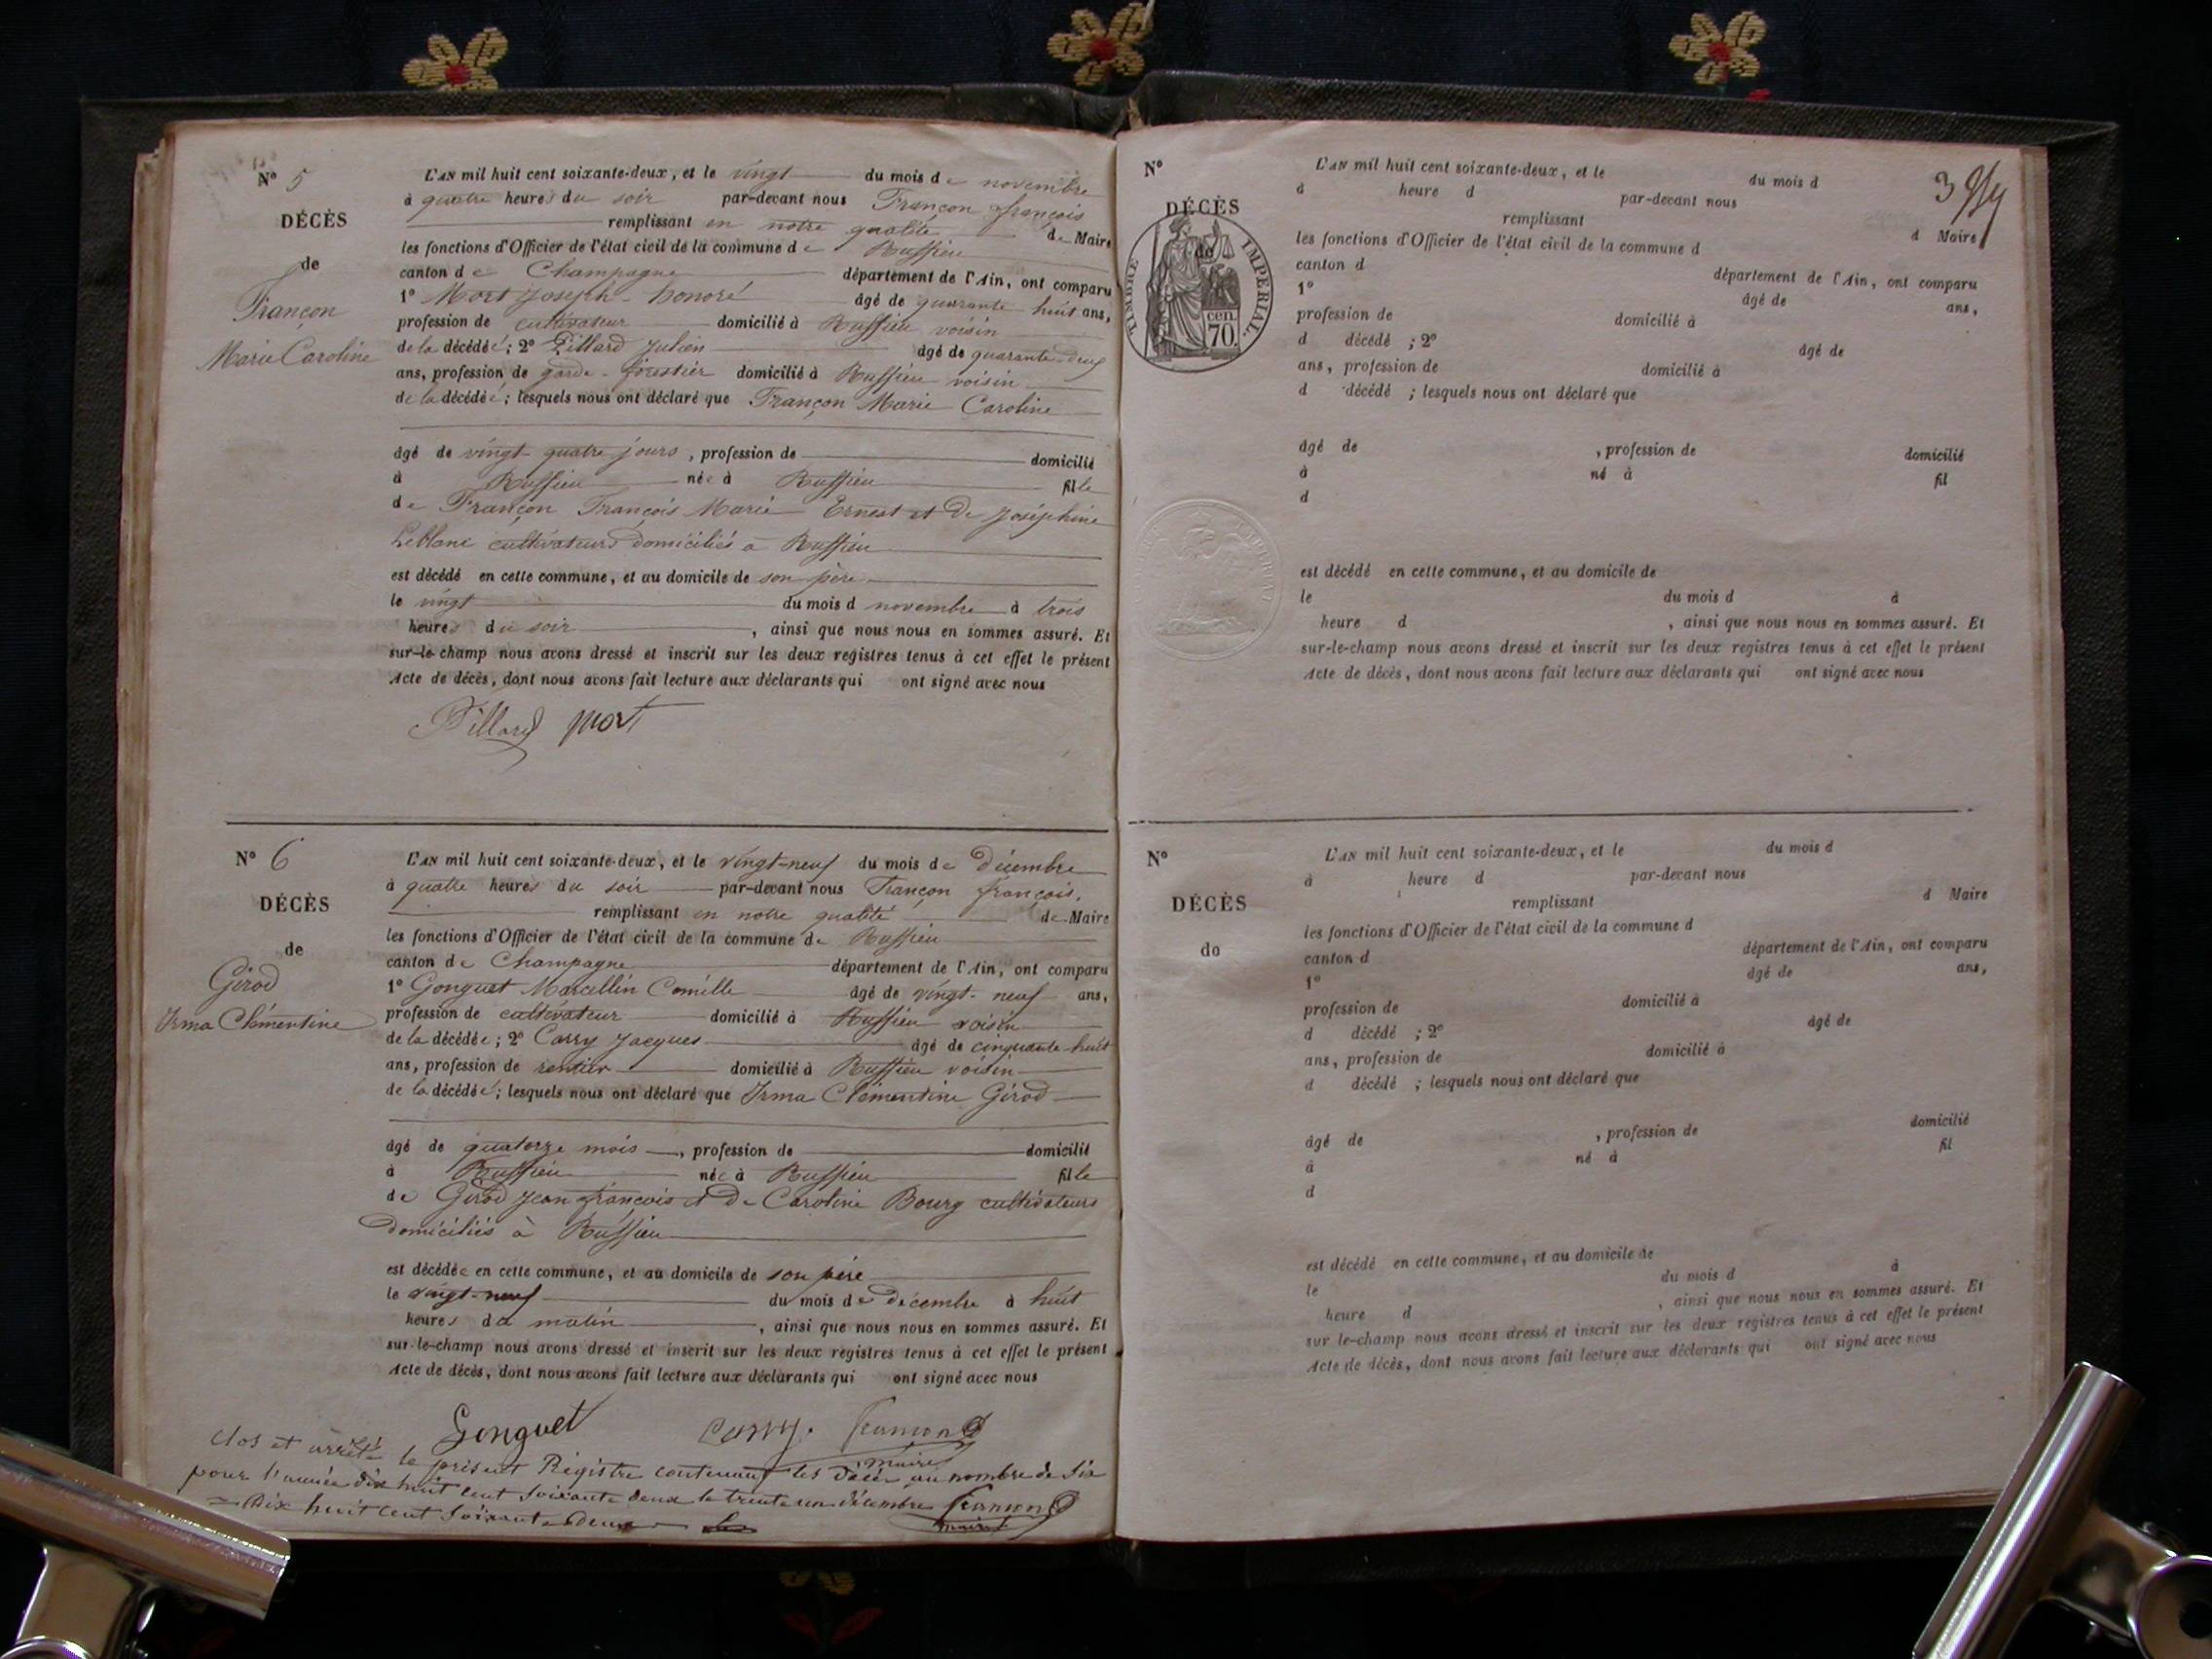 N° 5
DÉCÈS
de
Françon
Marie Caroline
L'AN mil huit cent soixante-deux, et le vingt du mois de novembre
à quatre heures du soir par-devant nous Françon françois
remplissant en notre qualité de Maire
les fonctions d'Officier de l'état civil de la commune de Ruffieu
canton de Champagne département de l'Ain, ont comparu
1° Mort Joseph-honoré âgé de quarante huit ans,
profession de cultivateur domicilié à Ruffieu voisin
de la décédée; 2° Pillard Julien âgé de quarante-deux
ans, profession de garde-forestier domicilié à Ruffieu voisin
de la décédée; lesquels nous ont déclaré que Françon Marie Caroline
âgé de vingt quatre jours, profession de domicilié
à Ruffieu née à Ruffieu fille
de Françon François Marie Ernest et de Joséphine
Leblanc cultivateurs domiciliés à Ruffieu
est décédé en cette commune, et au domicile de son père
le vingt du mois d novembre à trois
heures du soir, ainsi que nous nous en sommes assuré. Et
sur-le-champ nous avons dressé et inscrit sur les deux registres tenus à cet effet le présent
Acte de décès, dont nous avons fait lecture aux déclarants qui ont signé avec nous
Pillard Mort
N° 6
DÉCÈS
de
Girod
Irma Clémentine
L'AN mil huit cent soixante-deux, et le vingt-neuf du mois de décembre
à quatre heures du soir par-devant nous Françon françois,
remplissant en notre qualité de Maire
les fonctions d'Officier de l'état civil de la commune de Ruffieu
canton de Champagne département de l'Ain, ont comparu
1° Gonguet Marcellin Comille âgé de vingt-neuf ans,
profession de cultivateur domicilié à Ruffieu voisin
de la décédée; 2° Carry Jacques âgé de cinquante-huit
ans, profession de rentier domicilié à Ruffieu voisin
de la décédée; lesquels nous ont déclaré que Irma Clémentine Girod
âgé de quatorze mois, profession de domicilié
à Ruffieu née à Ruffieu fille
de Girod Jean françois et de Caroline Bourg cultivateurs
domiciliés à Ruffieu
est décédée en cette commune, et au domicile de son père
le vingt-neuf du mois de décembre à huit
heures du matin, ainsi que nous nous en sommes assuré. Et
sur-le-champ nous avons dressé et inscrit sur les deux registres tenus à cet effet le présent
Acte de décès, dont nous avons fait lecture aux déclarants qui ont signé avec nous
Gonguet Carry.
maire
Clos et arrêté le présent Régistre contenant les décès au nombre de six
pour l'année dix huit cent soixante deux le trente un décembre
dix huit cent soixante deux
maire
3
N°
DÉCÈS
de
TIMBRE IMPÉRIAL.
70 cen.
L'AN mil huit cent soixante-deux, et le du mois d
à heure d par-devant nous
remplissant d Maire
les fonctions d'Officier de l'état civil de la commune d
canton d département de l'Ain, ont comparu
1° âgé de ans,
profession de domicilié à
d décédé ; 2° âgé de
ans, profession de domicilié à
d décédé ; lesquels nous ont déclaré que
âgé de , profession de domicilié
à né à fil
d
est décédé en cette commune, et au domicile de
le du mois d à
heure d , ainsi que nous nous en sommes assuré. Et
sur-le-champ nous avons dressé et inscrit sur les deux registres tenus à cet effet le présent
Acte de décès, dont nous avons fait lecture aux déclarants qui ont signé avec nous
N°
DÉCÈS
de
L'AN mil huit cent soixante-deux, et le du mois d
à heure d par-devant nous
remplissant d Maire
les fonctions d'Officier de l'état civil de la commune d
canton d département de l'Ain, ont comparu
1° âgé de ans,
profession de domicilié à
d décédé ; 2° âgé de
ans, profession de domicilié à
d décédé ; lesquels nous ont déclaré que
âgé de , profession de domicilié
à né à fil
d
est décédé en cette commune, et au domicile de
le du mois d à
heure d , ainsi que nous nous en sommes assuré. Et
sur le-champ nous avons dressé et inscrit sur les deux registres tenus à cet effet le présent
Acte de décès, dont nous avons fait lecture aux déclarants qui ont signé avec nous